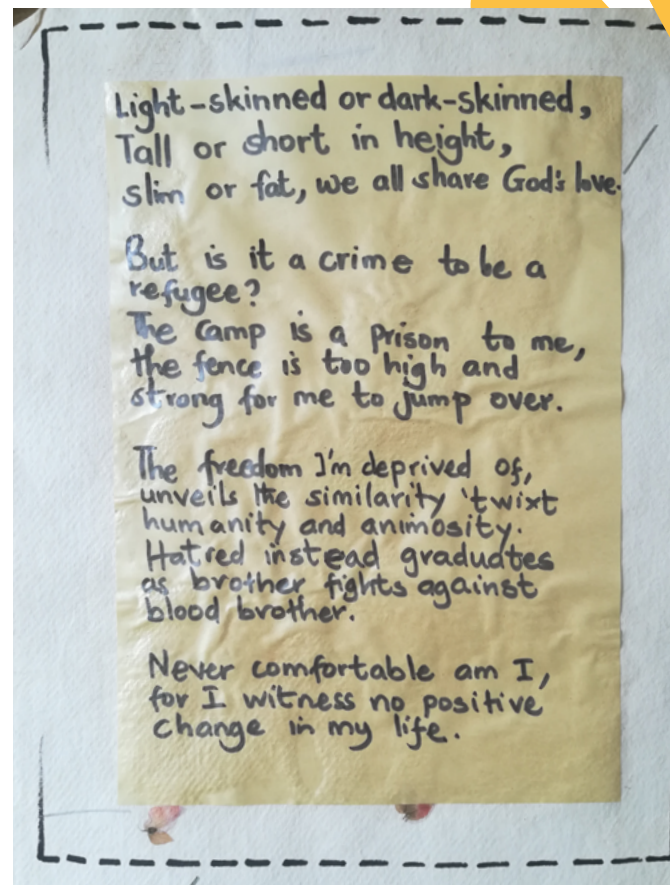 Light-skinned or dark-skinned,
Tall or short in height,
slim or fat, we all share God's love.
But is it a crime to be a
refugee?
The camp is a prison to me,
the fence is too high and
strong for me to jump over.
The freedom I'm deprived of,
unveils the similarity 'twixt
humanity and animosity.
Hatred instead graduates
as brother fights against
blood brother.
Never comfortable am I,
for I witness no positive
change in my life.